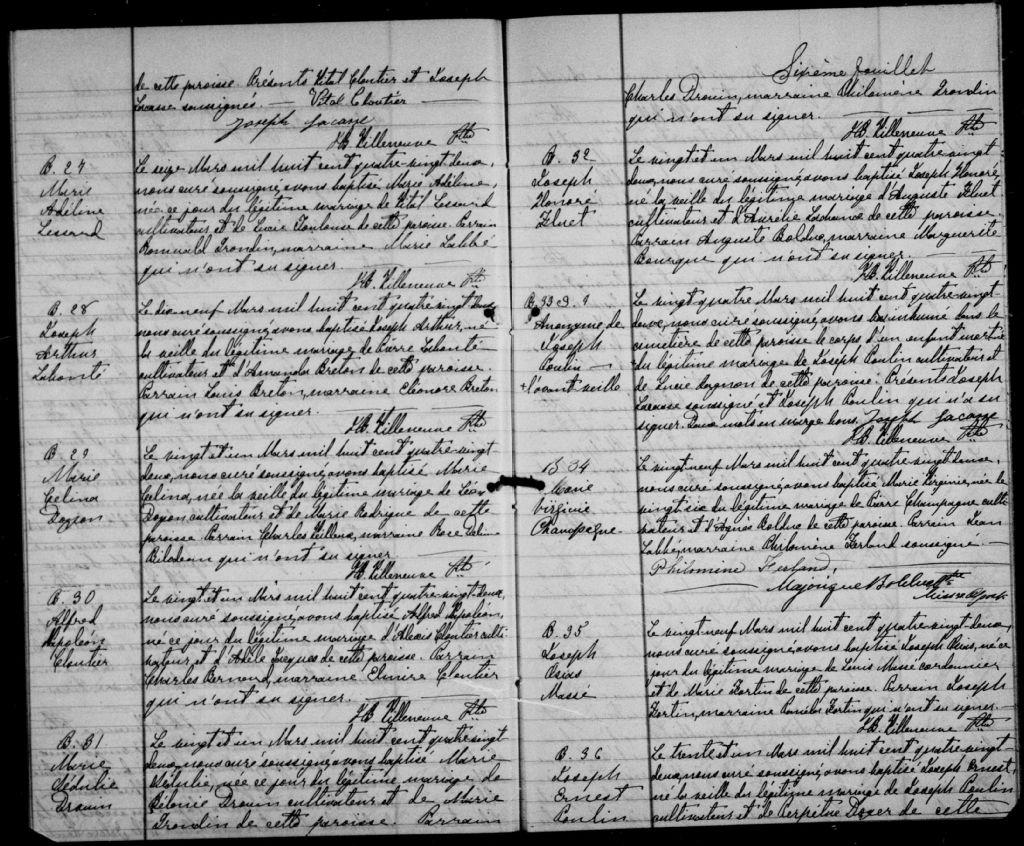 de cette paroisse. Présents Vital Cloutier et Joseph
Lacasse soussignés. — Vital Cloutier —
Joseph Lacasse
J.B. Villeneuve Ptre
B. 27
Marie
Adéline
Lessard
Le seize Mars mil huit cent quatre-vingt deux,
nous curé soussigné, avons baptisé Marie Adéline,
née ce jour du légitime mariage de Vital Lessard
cultivateur et de Lucie Toulouse de cette paroisse. Parrain
Romuald Grondin, marraine Marie Labbé
qui n'ont su signer. —
J.B. Villeneuve Ptre
B. 28
Joseph
Arthur
Lahonté
Le dix neuf Mars mil huit cent quatre vingt deux
nous curé soussigné, avons baptisé Joseph Arthur, né
la veille du légitime mariage de Pierre Lahonté
cultivateur et d'Amanda Breton de cette paroisse.
Parrain Louis Breton, marraine Eléonore Breton
qui n'ont su signer. —
J.B. Villeneuve Ptre
B. 29
Marie
Celina
Doyon
Le vingt et un Mars mil huit cent quatre-vingt
deux, nous curé soussigné, avons baptisé Marie
Celina, née la veille du légitime mariage de
Doyon cultivateur et de Marie Rodrigue de cette
paroisse. Parrain Charles, marraine Rose
Bilodeau qui n'ont su signer
J.B. Villeneuve Ptre
B. 30
Alfred
Napoléon
Cloutier
Le vingt et un Mars mil huit cent quatre-vingt-deux,
nous curé soussigné, avons baptisé Alfred Napoléon,
né ce jour du légitime mariage d'Alexis Cloutier culti-
vateur et d'Adèle Jacques de cette paroisse. Parrain
Charles Bernard, marraine Elmire Cloutier
qui n'ont su signer. —
J.B. Villeneuve Ptre
B. 31
Marie
Dédulie
Drouin
Le vingt et un Mars mil huit cent quatre vingt
deux, nous curé soussigné, avons baptisé Marie
née ce jour du légitime mariage de
Drouin cultivateur et de Marie
Grondin de cette paroisse. Parrain
Sixième feuillet
Charles Drouin, marraine Philomène Grondin
qui n'ont su signer. —
J.B. Villeneuve Ptre
B. 32
Joseph
Honoré
Fluet
Le vingt et un Mars mil huit cent quatre-vingt
deux, nous curé soussigné, avons baptisé Joseph Honoré,
né la veille du légitime mariage d'Auguste Fluet
cultivateur et d'Aurélie Lachance de cette paroisse.
Parrain Auguste Bolduc, marraine Marguerite
Bourque qui n'ont su signer. —
J.B. Villeneuve Ptre
B. 33 S. 9
Anonyme de
Joseph
Poulin
Le vingt quatre Mars mil huit cent quatre-vingt-
deux, nous curé soussigné, avons inhumé dans le
cimetière de cette paroisse le corps d'un enfant
du légitime mariage de Joseph Poulin cultivateur et
de Lucie Gagnon de cette paroisse. Présents Joseph
Lacasse soussigné et Joseph Poulin qui n'a su
signer. Deux mots en marge bons. Joseph Lacasse
J.B. Villeneuve Ptre
B. 34
Marie
Virginie
Champagne
Le vingt neuf Mars mil huit cent quatre-vingt deux,
nous curé soussigné, avons baptisé Marie Virginie, née le
vingt six du légitime mariage de Pierre Champagne culti-
vateur et d'Agnès Bolduc de cette paroisse. Parrain Jean
Labbé, marraine Philomène Ferland soussignée. —
Philomine Ferland,
Majorique Bolduc Ptre
B. 35
Joseph
Osias
Massé
Le vingt neuf Mars mil huit cent quatre-vingt deux,
nous curé soussigné, avons baptisé Joseph Osias, né ce
jour du légitime mariage de Louis Massé cordonnier
et de Marie Fortin de cette paroisse. Parrain Joseph
Fortin, marraine Fortin qui n'ont su signer. —
J.B. Villeneuve Ptre
B. 36
Joseph
Ernest
Poulin
Le trente et un Mars mil huit cent quatre vingt-
deux, nous curé soussigné, avons baptisé Joseph Ernest,
né la veille du légitime mariage de Joseph Poulin
cultivateur et de Perpétue Doyer de cette